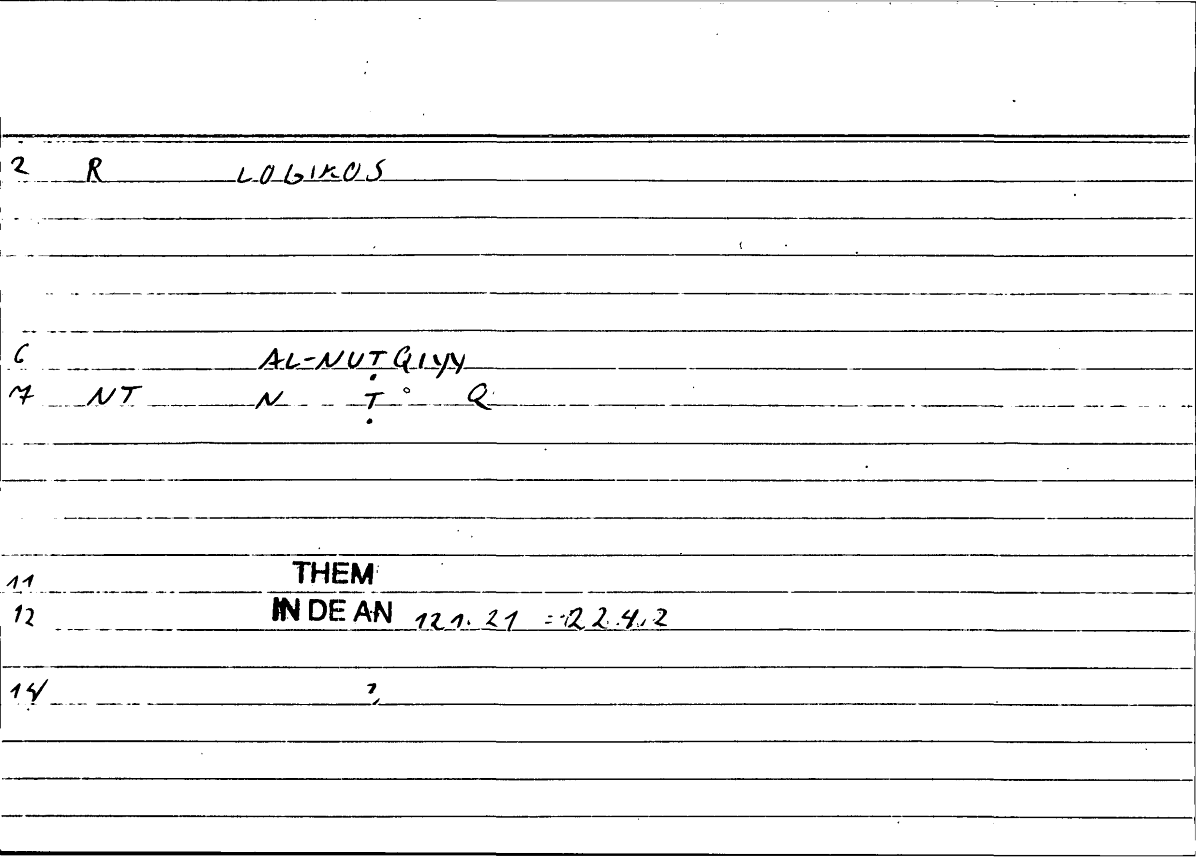 2 R LOGIKOS
6 AL-NUṬQIYY
7 NT N Ṭ ° Q
11 THEM
12 IN DE AN 121.21 = 22.4.2
14 2